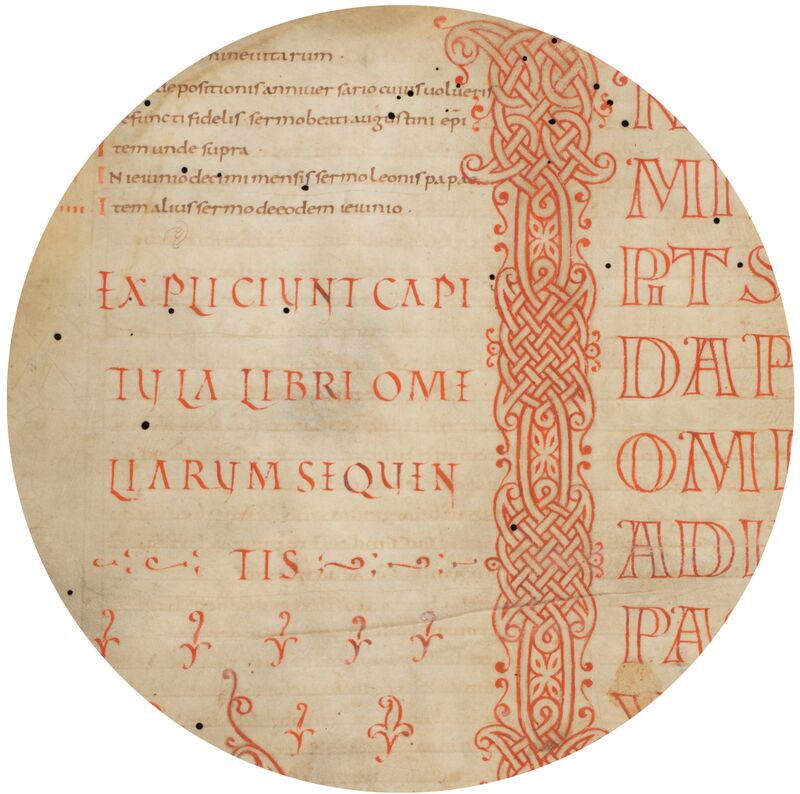 ninevitarum ·
depositionis anniversario cuius volueris
defuncti fidelis sermo beati augustini ep̄i
Item unde supra ·
IN ieiunio decimi mensis sermo leonis papae
Item alius sermo de eodem ieiunio ·
EXPLICIUNT CAPI
TULA LIBRI OME
LIARUM SEQUEN
TIS
IN
MI
PITS
DAP
OME
ADI
PA